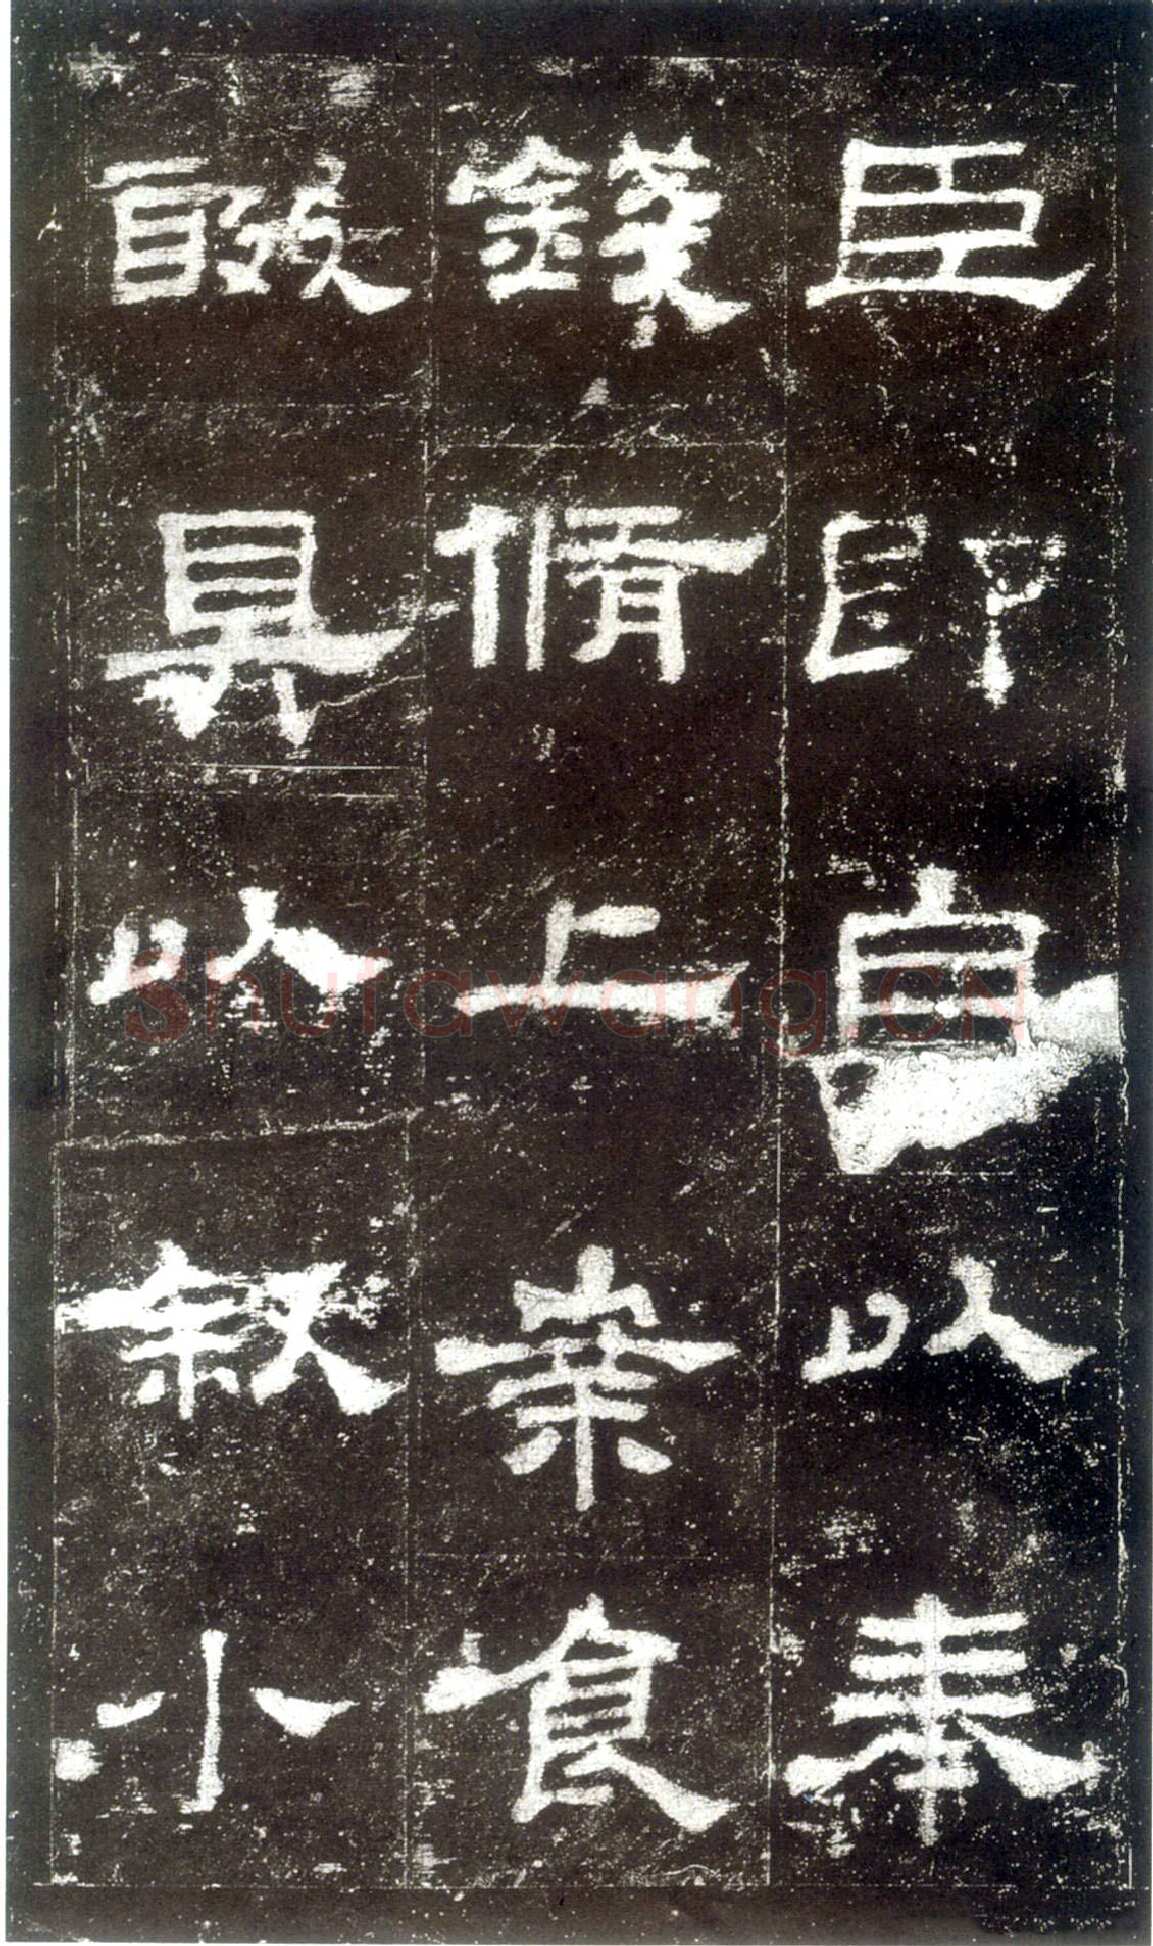 臣即自以奉
錢脩上案食
醊具以叙小
shufawang.cn